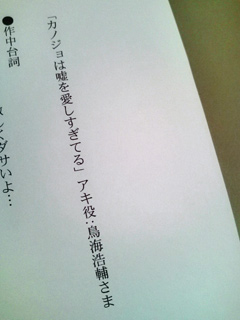 「カノジョは嘘を愛しすぎてる」アキ役：鳥海浩輔さま
●作中台詞
ダサいよ…